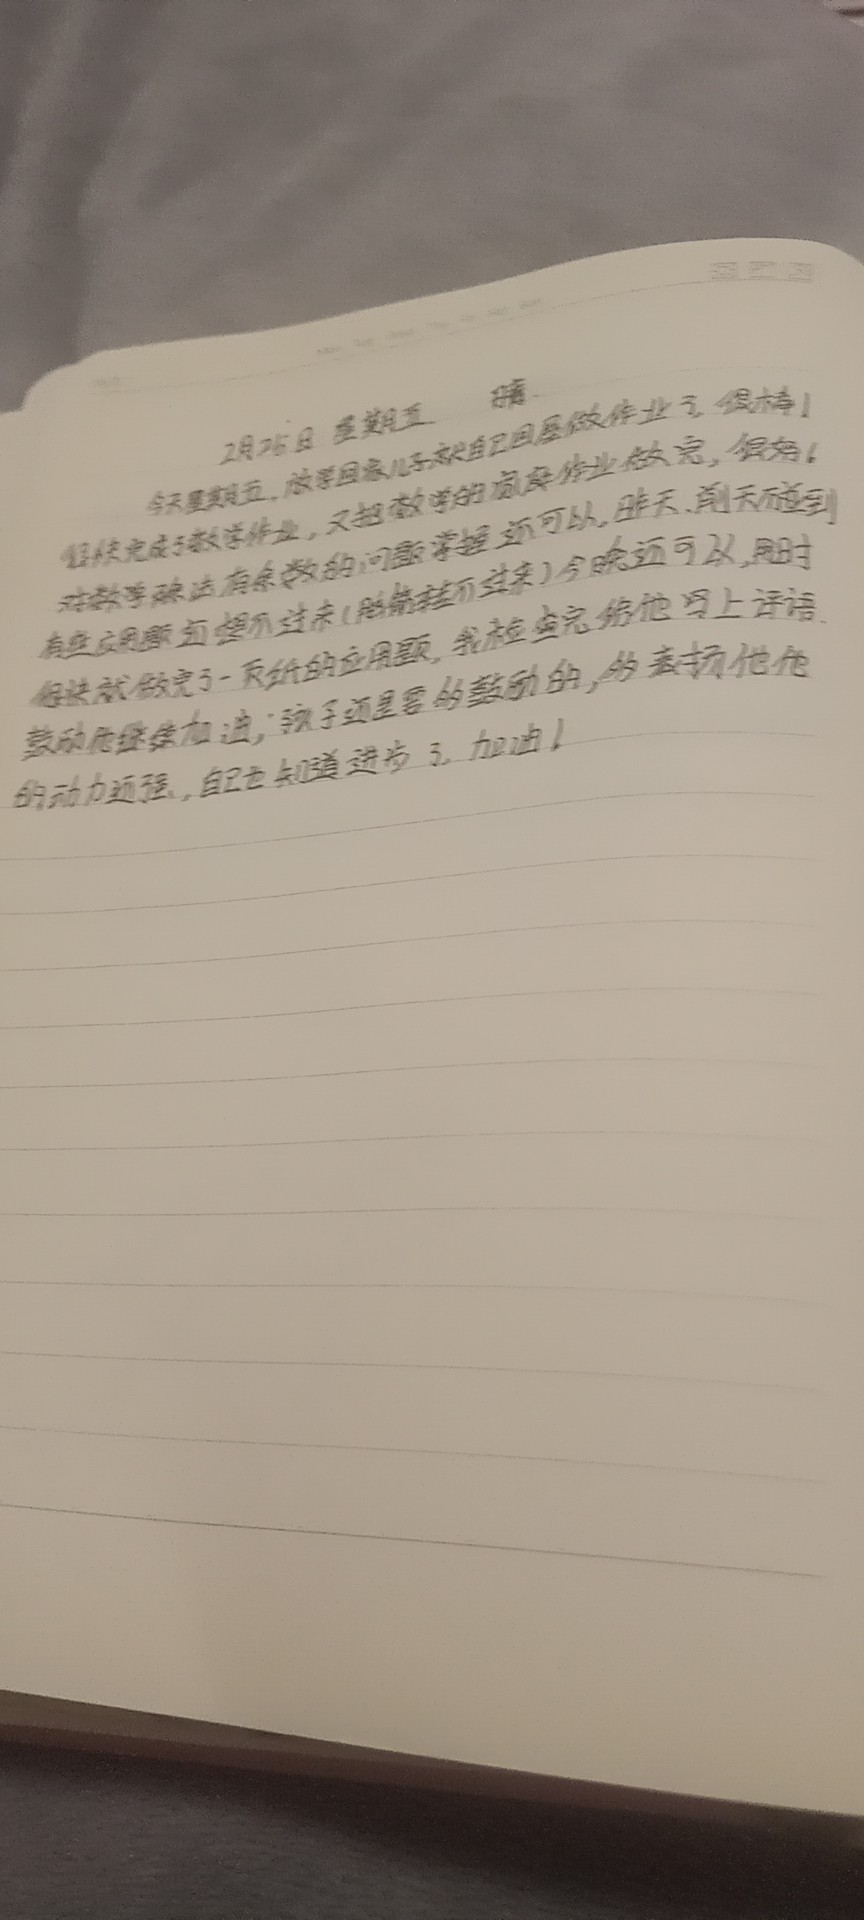 2月25日 星期五 晴
今天星期五，放学回家儿子就自己回屋做作业了，很棒！
很快完成了数学作业，又把数学的家庭作业做完，很好！
对数学除法有余数的问题掌握还可以，昨天、前天碰到
有些应用题 想不过来（脑筋转不过来）今晚还可以，用时
很快就做完了一页纸的应用题，我检查完给他写上评语
鼓励他继续加油，孩子还是要的鼓励的，的表扬他他
的动力还强，自己也知道进步了。加油！